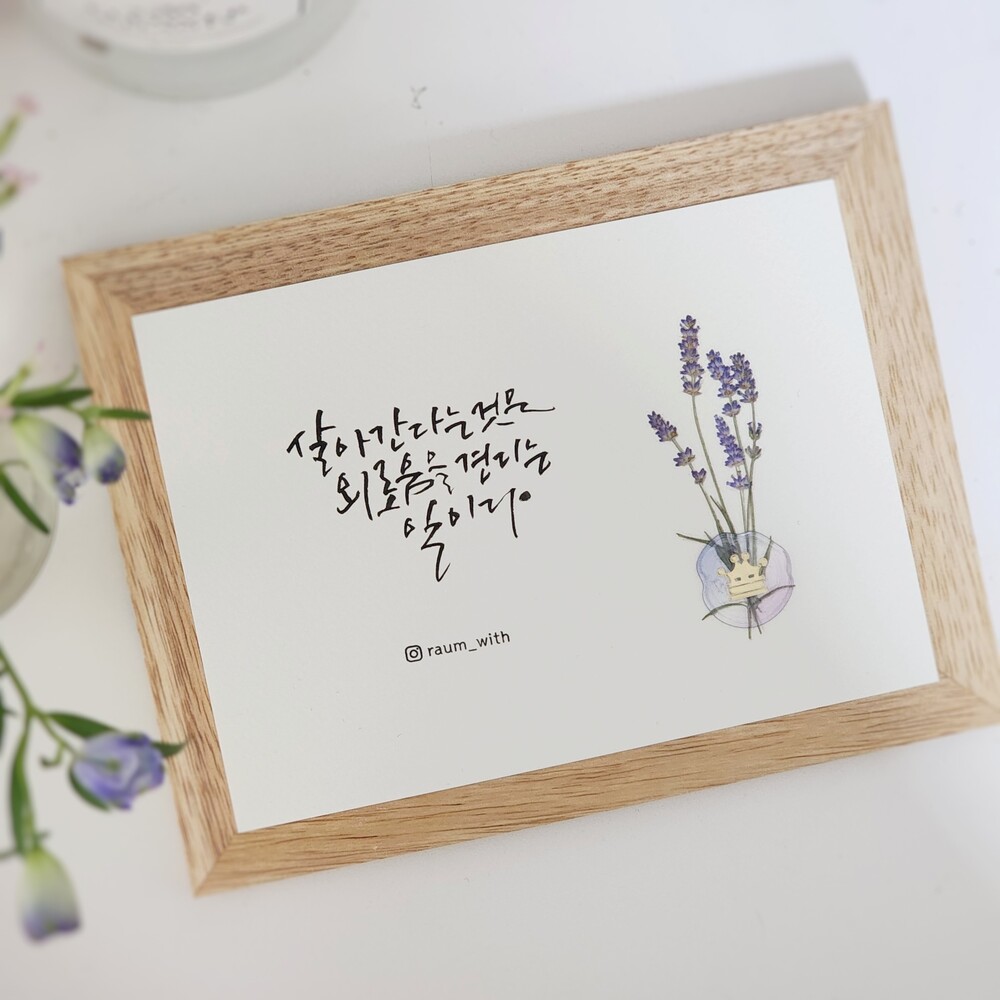 살아간다는것은
외로움을견디는
일이다.
raum_with